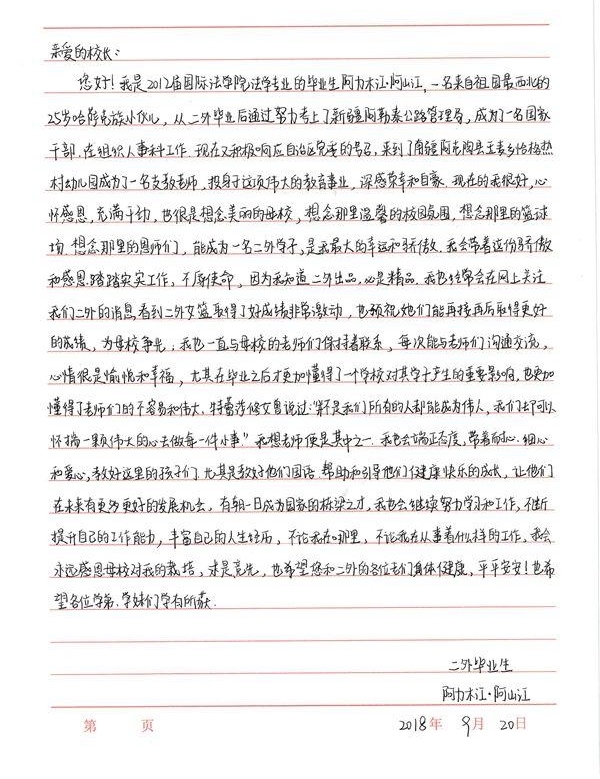 亲爱的校长：
您好！我是2012届国际法学院法学专业的毕业生阿力木江·阿山江，一名来自祖国最西北的
25岁哈萨克族小伙儿，从二外毕业后通过努力考上了新疆阿勒泰公路管理局，成为了一名国家
干部，在组织人事科工作。现在又积极响应自治区党委的号召，来到了南疆阿克陶县玉麦乡恰格热
村幼儿园成为了一名支教老师，投身于这项伟大的教育事业，深感荣幸和自豪。现在的我很好，心
怀感恩，充满干劲，也很是想念美丽的母校，想念那里温馨的校园氛围，想念那里的篮球
场，想念那里的恩师们，能成为一名二外学子，是我最大的幸运和骄傲。我会带着这份骄傲
和感恩踏踏实实工作，不辱使命，因为我知道二外出品，必是精品。我也经常会在网上关注
我们二外的消息，看到二外女篮取得了好成绩非常激动，也预祝她们能再接再后取得更好
的成绩，为母校争光；我也一直与母校的老师们保持着联系，每次能与老师们沟通交流，
心情很是愉悦和幸福，尤其在毕业之后才更加懂得了一个学校对其学子产生的重要影响，也更加
懂得了老师们的不容易和伟大。特蕾莎修女曾说过：“不是我们所有的人都能成为伟人，我们却可以
怀揣一颗伟大的心去做每一件小事”我想老师便是其中之一。我也会端正态度，带着耐心、细心
和爱心，教好这里的孩子们，尤其是教好他们国语，帮助和引导他们健康快乐的成长，让他们
在未来有更多更好的发展机会，有朝一日成为国家的栋梁之才，我也会继续努力学习和工作，不断
提升自己的工作能力，丰富自己的人生经历，不论我在哪里，不论我在从事着什么样的工作，我会
永远感恩母校对我的栽培，求是竞先，也希望您和二外的各位老们身体健康，平平安安！也希
望各位学弟、学妹们学有所获。
二外毕业生
阿力木江·阿山江
第 页 2018年 9月 20日